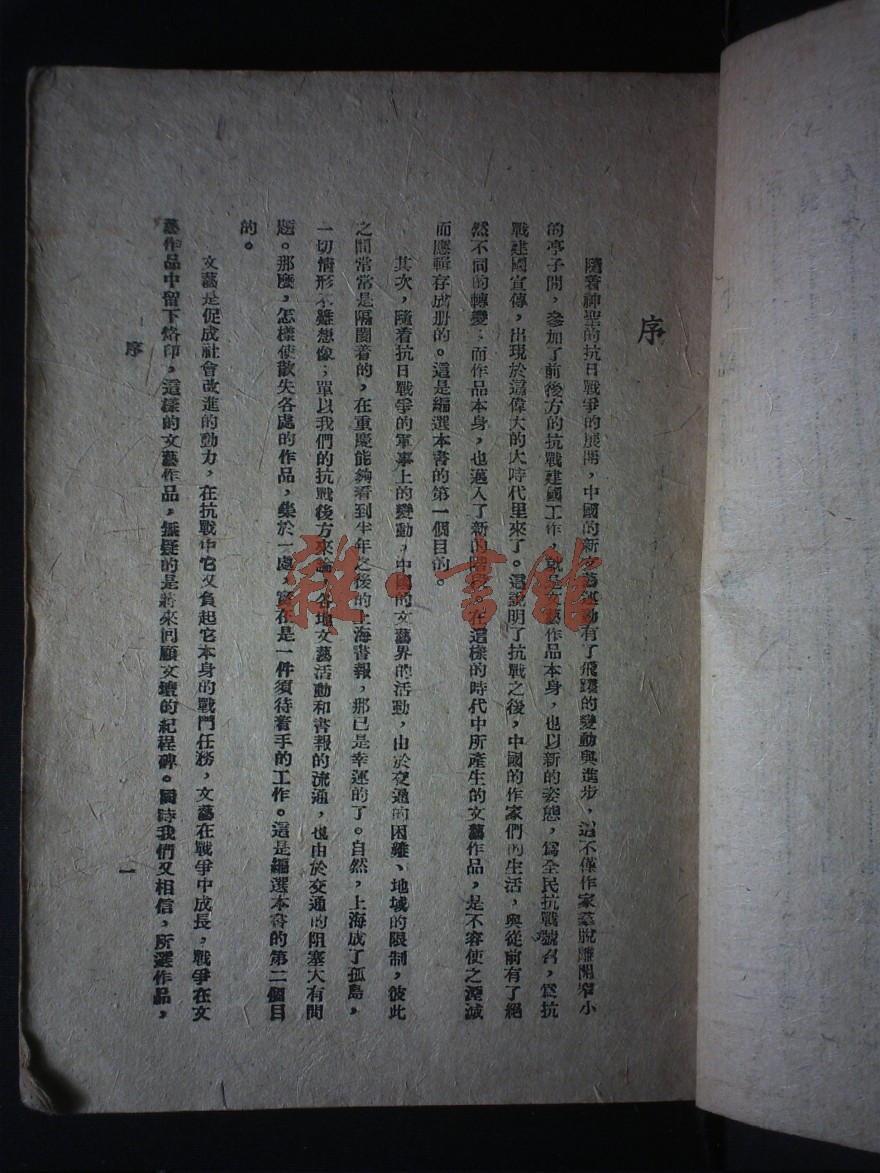 序
隨着神聖的抗日戰爭的展開，中國的新文藝運動有了飛躍的變動與進步，這不僅作家羣脫離開窄小
的亭子間，參加了前後方的抗戰建國工作，就是文藝作品本身，也以新的姿態，爲全民抗戰號召，爲抗
戰建國宣傳，出現於這偉大的大時代里來了。這說明了抗戰之後，中國的作家們的生活，與從前有了絕
然不同的轉變；而作品本身，也邁入了新的階段。在這樣的時代中所產生的文藝作品，是不容使之湮滅
而應輯存成册的。這是編選本書的第一個目的。
其次，隨着抗日戰爭的軍事上的變動，中國的文藝界的活動，由於交通的困難、地域的限制，彼此
之間常常是隔閡着的，在重慶能夠看到半年之後的上海書報，那已是幸運的了。自然，上海成了孤島，
一切情形不難想像；單以我們的抗戰後方來論，各地文藝活動和書報的流通，也由於交通的阻塞大有問
題。那麼，怎樣使散失各處的作品，集於一處，實在是一件須待着手的工作。這是編選本書的第二個目
的。
文藝是促成社會改進的動力，在抗戰中它又負起它本身的戰鬥任務，文藝在戰爭中成長，戰爭在文
藝作品中留下烙印，這樣的文藝作品，無疑的是將來回顧文壇的紀程碑。同時我們又相信，所選作品，
序
一
雜·書館